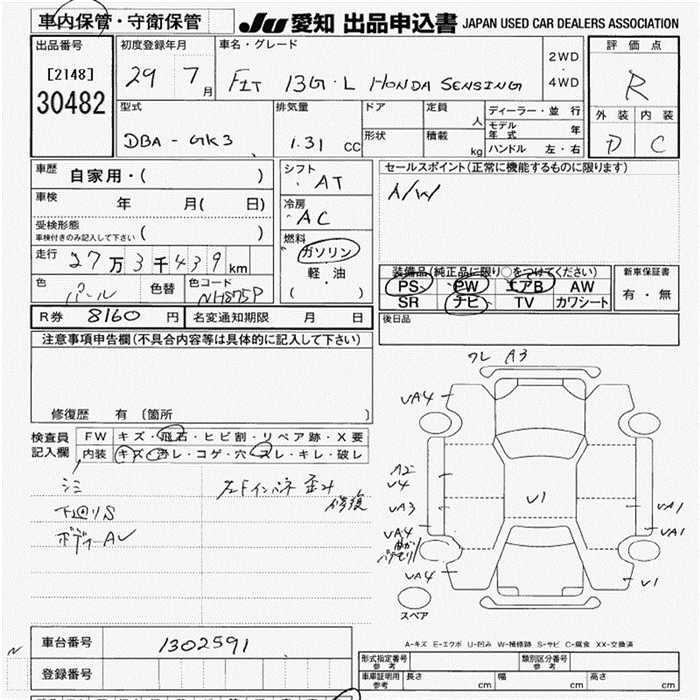 車内保管・守衛保管 JU 愛知 出品申込書 JAPAN USED CAR DEALERS ASSOCIATION
出品番号 初度登録年月 車名・グレード 2WD ・ 4WD 評価点
[2148] 30482 29 7月 FIT 13G・L HONDA SENSING R
型式 排気量 ドア 定員 人 ディーラー・並行 外装 内装
DBA-GK3 1.31 CC 形状 積載 kg モデル年式 年 D C
ハンドル 左・右
車歴 自家用・( ) シフト AT セールスポイント(正常に機能するものに限ります)
車検 年 月( 日) 冷房 AC A/W
受検形態 ( )
車検付きのみ記入して下さい
燃料 ガソリン 軽・油 ( )
走行 27万3千439km
色 パール 色替 色コード NH875P
装備品(純正品に限り○をつけてください) 新車保証書
PS PW エアB AW 有・無
SR ナビ TV カワシート
R券 8160円 名変通知期限 月 日 後日品
注意事項申告欄(不具合内容等は具体的に記入して下さい)
修復歴 有 〔箇所 〕
検査員記入欄 FW キズ・飛石・ヒビ割・リペア跡・X要
内装 キズ・ヨレ・コゲ・穴・スレ・キレ・破レ
シミ
下回りS
ボディAU
インパネ 歪み
修復
ワレ A3
UA4
A2
U4
UA3
UA4
UA4
U1
UA1
UA1
U1
スペア
A-キズ E-エクボ U-凹み W-補修跡 S-サビ C-腐食 XX-交換済
車台番号 1302591
登録番号
型式指定番号 参考 類別区分番号 参考
車庫証明用 参考 長さ cm 幅 cm 高さ cm